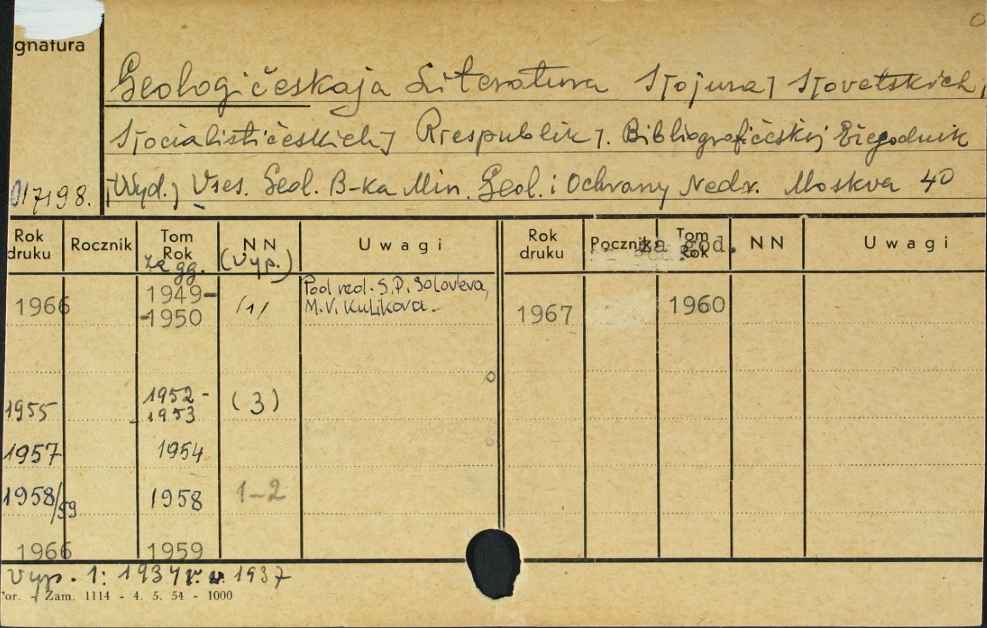 gnatura
Geologičeskaja Literatura S[ojuza] S[ovetskich]
S[ocialističeskich] R[respublik]. Bibliografičeskij Ežegodnik
[Wyd.] Vses. Geol. B-ka Min. Geol. i Ochrany Nedr. Moskva 40
7198.
Rok druku Rocznik Tom Rok NN Uwagi Rok druku Rocznik Tom Rok NN Uwagi
za gg. (vyp.) za god.
1966 1949-1950 /1/ Pod red. S.P. Soloveva, M.V. Kulikova. 1967 1960
1955 1952-1953 (3)
1957 1954
1958/59 1958 1-2
1966 1959
Vyp. 1: 1934 1937
or. - Zam. 1114 - 4. 5. 54 - 1000